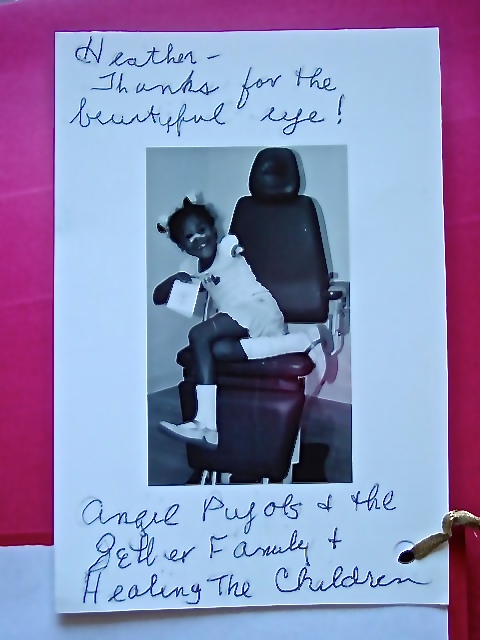 Heather -
Thanks for the
beautyful eye!
Angel Pujols & the
Family &
Healing The Children